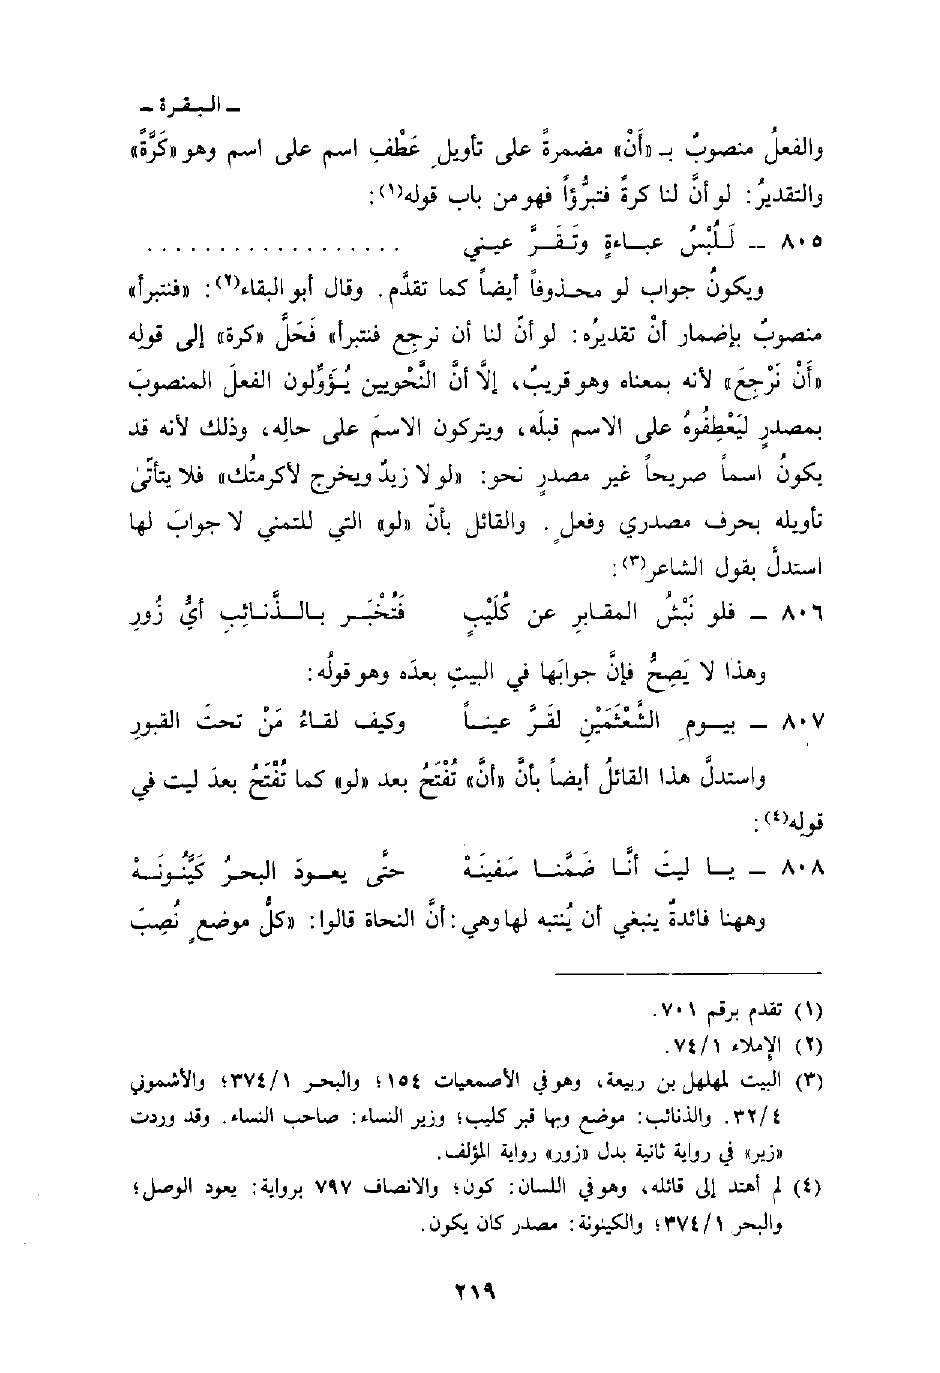 ـ البقرة ـ
والفعلُ منصوبٌ بـ «أَنْ» مضمرةً على تأويلِ عَطْفِ اسم على اسم وهو «كَرَّةً»
والتقديرُ: لو أنَّ لنا كرةً فتبرُّؤاً فهو من باب قوله(١):
٨٠٥ ـ لَلُبْسُ عبـاءةٍ وتَقَـرَّ عيـني . . . . . . . . . . . . . . . . . .
ويكونُ جواب لو محـذوفاً أيضـاً كما تقدَّم. وقال أبو البقاء(٢): «فنتبرأ»
منصوبٌ بإضمار أنْ تقديرُه: لو أنَّ لنا أن نرجع فنتبرأ» فَحَلَّ «كرة» إلى قوله
«أَنْ نَرْجِعَ» لأنه بمعناه وهو قريبٌ، إلَّا أنَّ النَّحْويين يُؤَوِّلون الفعلَ المنصوبَ
بمصدرٍ ليَعْطِفُوهُ على الاسم قبلَه، ويتركون الاسمَ على حالِه، وذلك لأنه قد
يكونُ اسمـاً صريحاً غير مصدرٍ نحو: «لو لا زيدٌ ويخرج لأكرمتُك» فلا يتأتَّىٰ
تأويله بحرف مصدري وفعلٍ. والقائل بأنَّ «لو» التي للتمني لا جوابَ لها
استدلَّ بقول الشاعر(٣):
٨٠٦ ـ فلو نُبْشُ المقابرِ عن كُلَيْبٍ فَتُخْبَـر بـالـذَّنـائِبِ أيُّ زُورِ
وهذا لا يَصِحُّ فإنَّ جوابَها في البيتِ بعدَه وهو قولُه:
٨٠٧ ـ بيـومِ الشَّعْثَمَيْنِ لَقَـرَّ عينـاً وكيف لقـاءُ مَنْ تحتَ القبورِ
واستدلَّ هذا القائلُ أيضاً بأنَّ «أنَّ» تُفْتَحُ بعد «لو» كما تُفْتَحُ بعدَ ليت في
قولِه(٤):
٨٠٨ ـ يـا ليتَ أنَّـا ضَمَّنـا سَفينَهْ حتَّى يعـودَ البحرُ كَيَّنُونَهْ
وههنا فائدةٌ ينبغي أن يُنتبه لها وهي: أنَّ النحاة قالوا: «كلُّ موضعٍ نُصِبَ
(١) تقدم برقم ٧٠١.
(٢) الإملاء ٧٤/١.
(٣) البيت لمهلهل بن ربيعة، وهو في الأصمعيات ١٥٤؛ والبحر ٣٧٤/١؛ والأشموني
٣٢/٤. والذنائب: موضع وبها قبر كليب؛ وزير النساء: صاحب النساء. وقد وردت
«زير» في رواية ثانية بدل «زور» رواية المؤلف.
(٤) لم أهتد إلى قائله، وهو في اللسان: كون؛ والانصاف ٧٩٧ برواية: يعود الوصل؛
والبحر ٣٧٤/١؛ والكينونة: مصدر كان يكون.
٢١٩